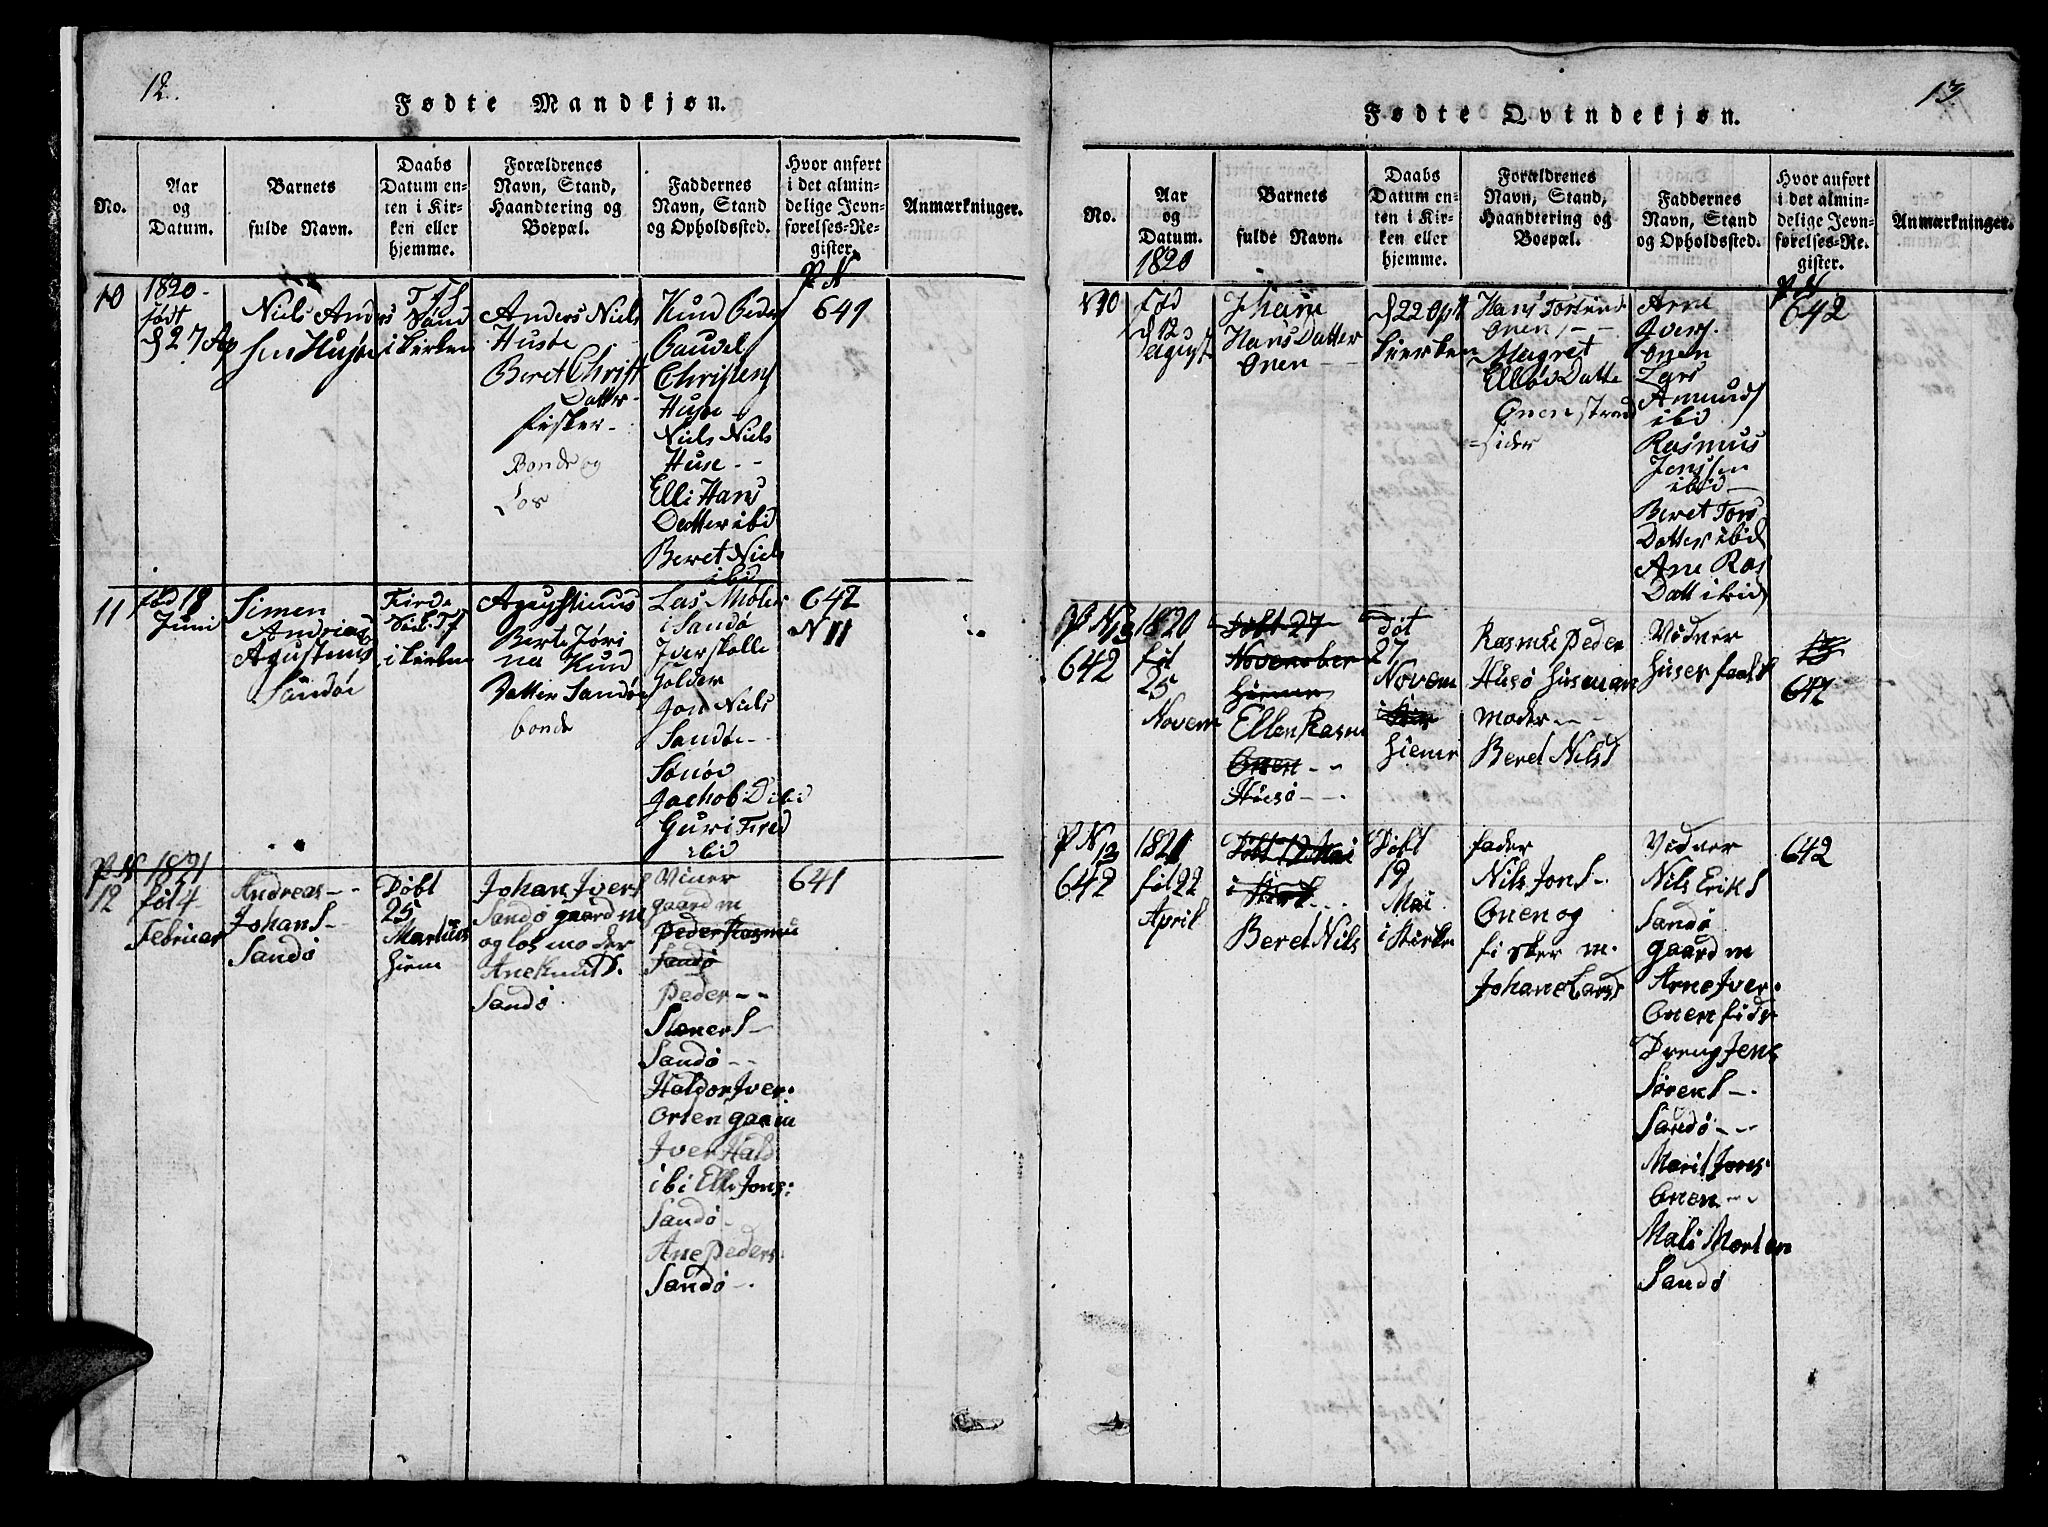 12.
Fødte Mandkjøn.
No.
Aar
og
Datum.
Barnets
fulde Navn.
Daabs
Datum en-
ten i Kir-
ken eller
hjemme.
Forældrenes
Navn, Stand,
Haandtering og
Boepæl.
Faddernes
Navn, Stand
og Opholdssted.
Hvor anført
i det almin-
delige Jevn-
førelses-Re-
gister.
Anmærkninger.
10
1820
født
d 27 Ap
Niels Anders
sen Husøe
Sønd
i Kirken
Anders Niels
Husøe
Beret Christ
Datter
fisker
Bonde og
Los
Knud Peders
Gaudel
Christens
Husøe
Niels Niels
Huse
Elli Hans
Datter ibid
Beret Niels
ibid
P N
641
11
fød 18
Juni
Simen
Andreas
Agustenus
Sandøe
i Kirken
Agustinus
Berte Jøri
na Knud
Datter Sandøe
bonde
Las Møler
i Sandø
Iver
Jon Niels
Sandøe
Sønøv
Jachob D ibid
Guri
ibid
642
N 11
P N
12
1821
føt 4
Februar
Andreas
Johan S
Sandø
Døbt
25
Martius
hiem
Johan Ivers
Sandø gaard m
og los moder
Ane Knut D.
Sandø
Viner
gaard m
Peder Rasmu
Sandø
Peder
Stener S
Sandø
Haldor Iver
Orten gaar m
Iver Hald
ibi Elli Jons
Sandø
Ane Peders
Sandø
641
13
Fødte Qvindekjøn.
No.
Aar
og
Datum.
1820
Barnets
fulde Navn.
Daabs
Datum en-
ten i Kir-
ken eller
hjemme.
Forældrenes
Navn, Stand,
Haandtering og
Boepæl.
Faddernes
Navn, Stand
og Opholdssted.
Hvor anført
i det almin-
delige Jevn-
førelses-Re-
gister.
Anmærkninger.
N 10
Fød
d 12
Agust
Hans Datter
Onen
d 22
Hans
Onen
Magret
Elløv Datte
Onen strand
sider
Arne
Ivers
Onen
Lars
Amunds
ibid
Rasmus
Jenssen
ibid
Beret Tors
Datter ibid
Ane Ras
Datt ibid
P N
642
P N 13
642
1820
føt
25
Novem
Døbt 27
November
hieme
Ellen Rasm
Onen
Husø
Døt
27
Novem
i Kir
hieme
Rasmus Peder
Husø husman
moder
Beret Nils D
Vidner
huser faalk
13
642
P N 13
642
1821
føt 22
April
Døbt 19 Mai
i Kirk
Beret Nils
Døbt
19
Mai
i Kirke
fader
Nils Jon S
Onen og
fisker m.
Johane Lars D
Vidner
Nils Erik S
Sandø
gaard m
Arne Iver
Onen
Dreng Jens
Søren S
Sandø
Marit Jons
Onen
Mali Morten
Sandø
642